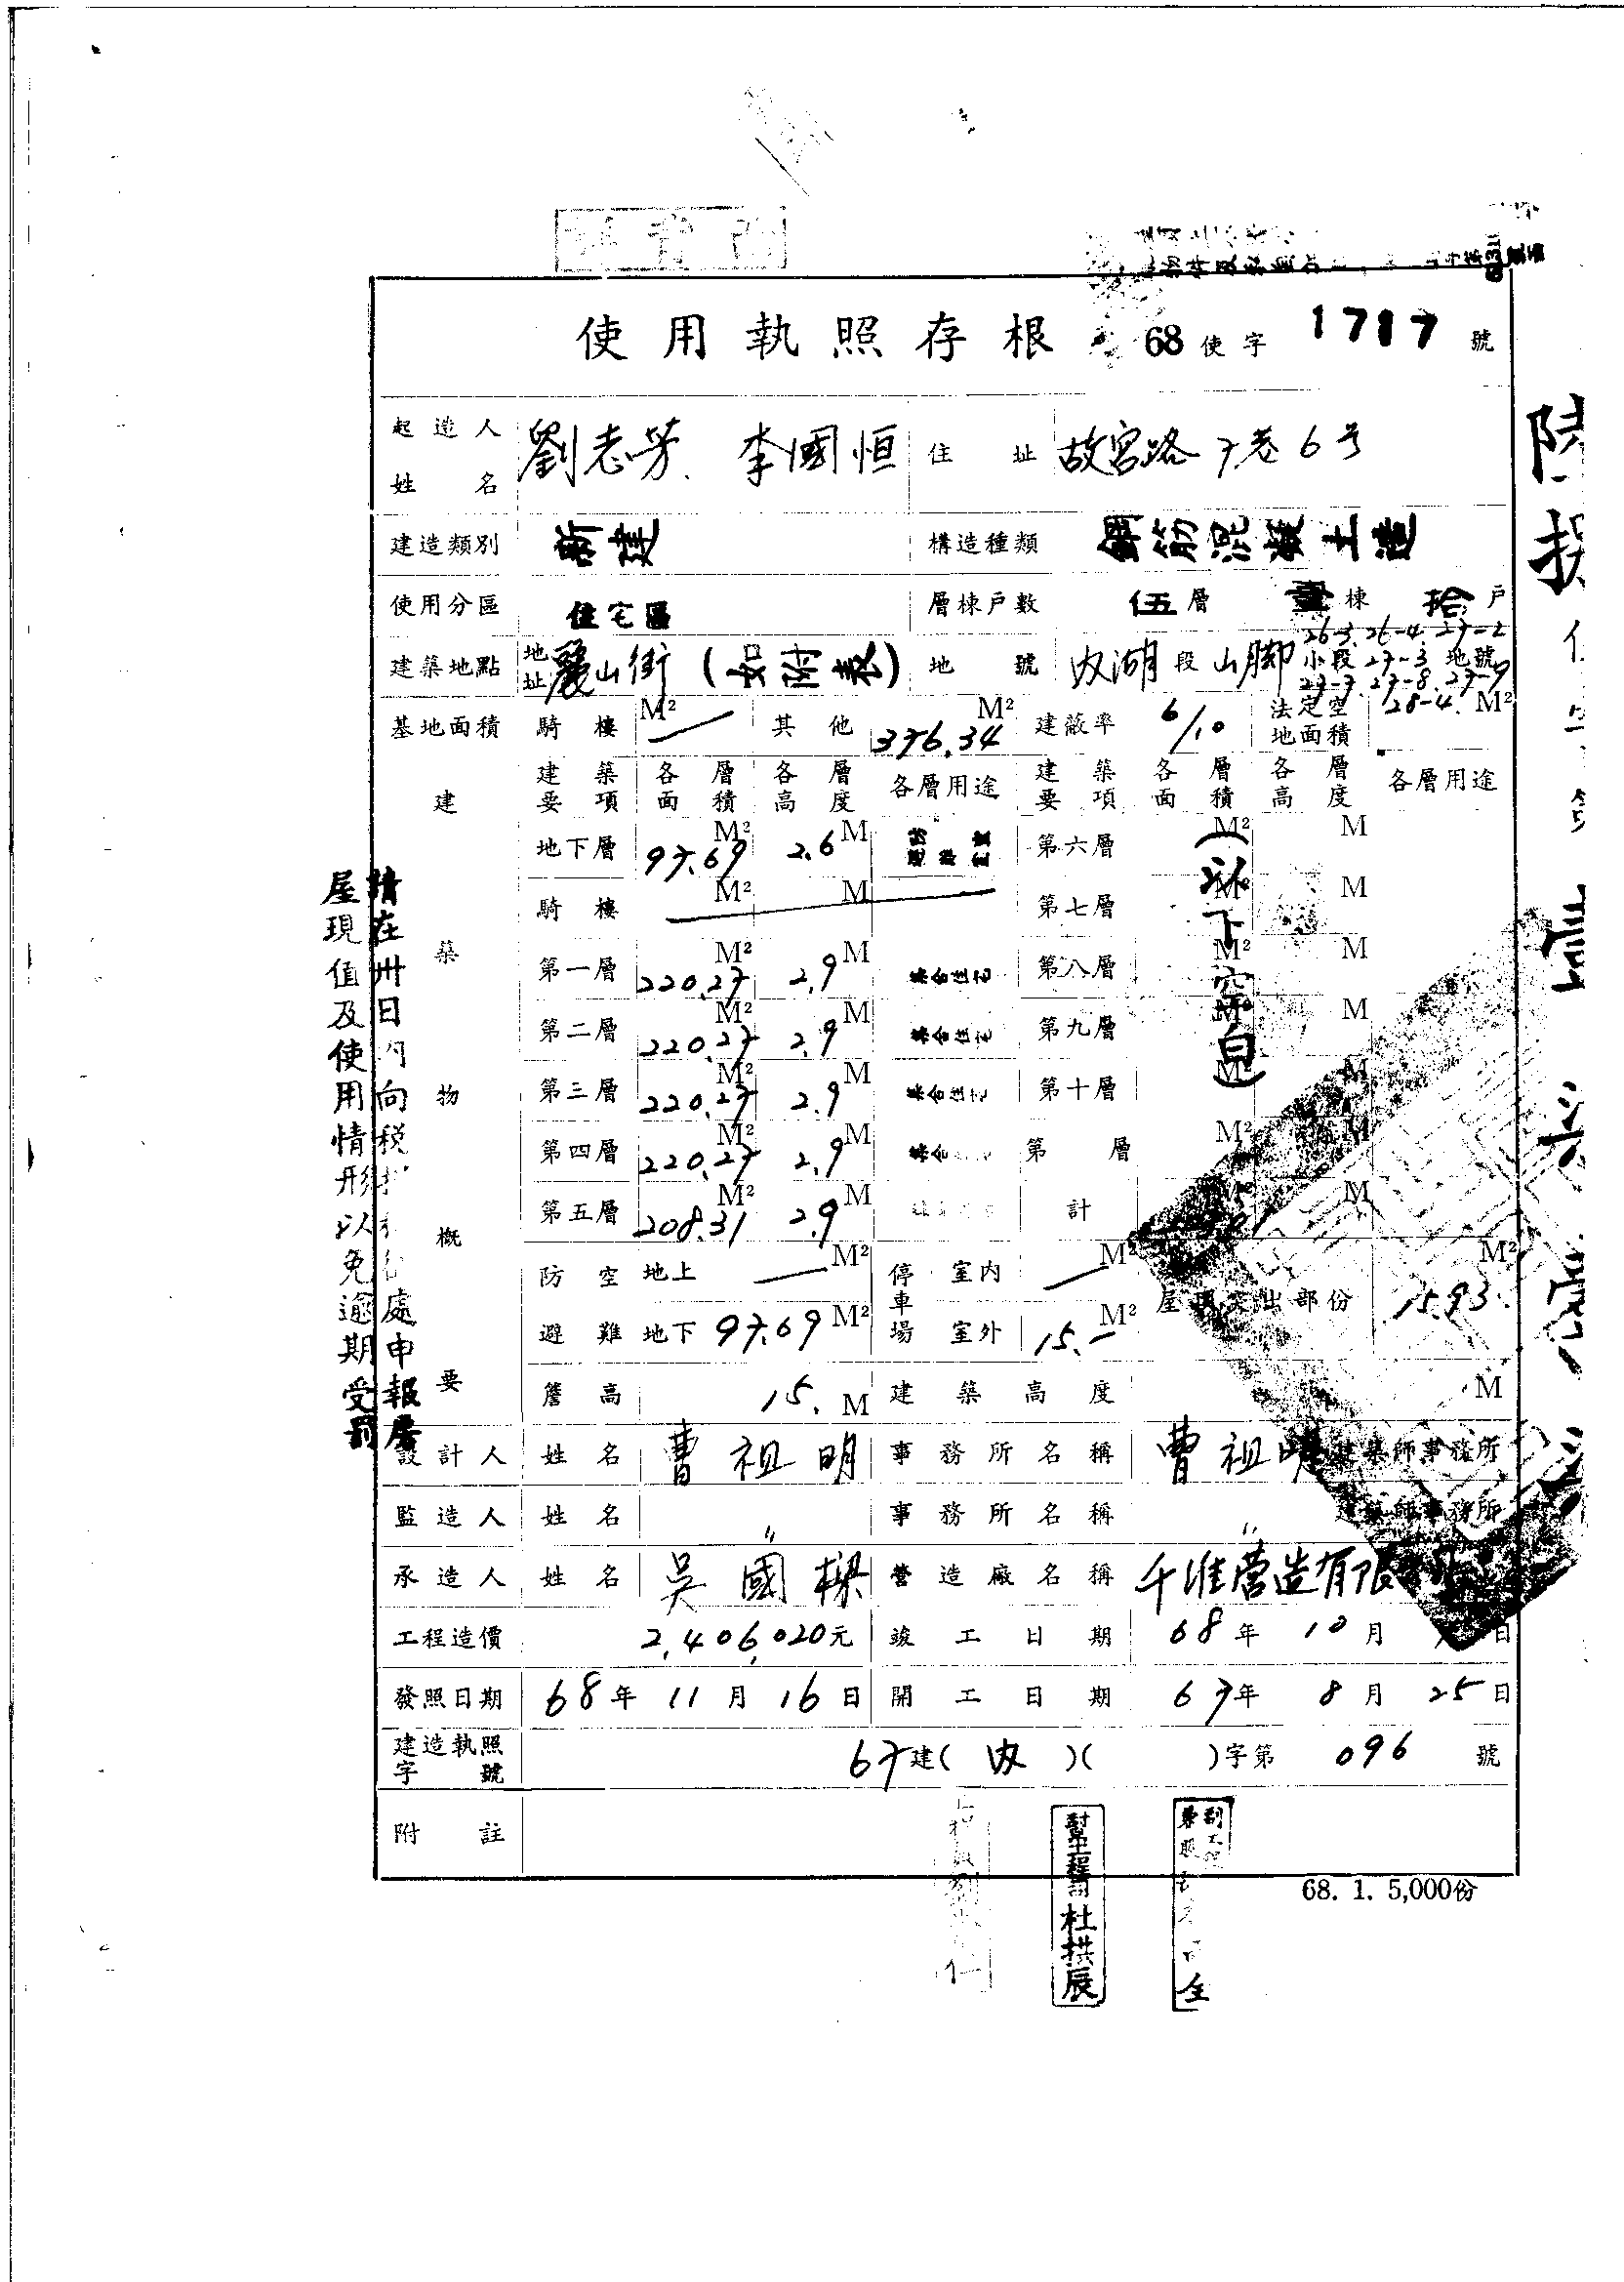 使用執照存根 68使字 1717 號
起造人姓名 劉志芳、李國恒 住址 故宮路7巷6号
建造類別 新建 構造種類 鋼筋混凝土造
使用分區 住宅區 層棟戶數 伍層 壹棟 拾戶
建築地點 地址 麗山街(如附表) 地號 內湖段山腳小段 26-3.26-4.27-2 27-3 27-7.27-8.27-9 28-4. 地號
基地面積 騎樓 M² — 其他 376.34 M² 建蔽率 6/10 法定空地面積 M²
建築物概要
建築要項 各層面積 各層高度 各層用途 建築要項 各層面積 各層高度 各層用途
地下層 97.69 M² 2.6 M 第六層 M² M
騎樓 M² M 第七層 M² M
第一層 220.27 M² 2.9 M 集合住宅 第八層 M² M
第二層 220.27 M² 2.9 M 集合住宅 第九層 M² M
第三層 220.27 M² 2.9 M 集合住宅 第十層 M² M
第四層 220.27 M² 2.9 M 集合 第 層 M² M
第五層 208.31 M² 2.9 M 計 M
(以下空白)
防空避難 地上 — M² 停車場 室內 — M² 屋頂突出部份 15.93 M²
地下 97.69 M² 室外 15.— M²
簷高 15. M 建築高度 M
設計人 姓名 曹祖明 事務所名稱 曹祖明 建築師事務所
監造人 姓名 〃 事務所名稱 〃 建築師事務所
承造人 姓名 吳國樑 營造廠名稱 千維營造有限
工程造價 2,406,020元 竣工日期 68年 10月 日
發照日期 68年 11月 16日 開工日期 67年 8月 25日
建造執照字號 67建(內)( )字第 096 號
附註
68. 1. 5,000份
請在卅日內向稅 處申報房
屋現值及使用情形以免逾期受罰
幫工程司 杜拱辰